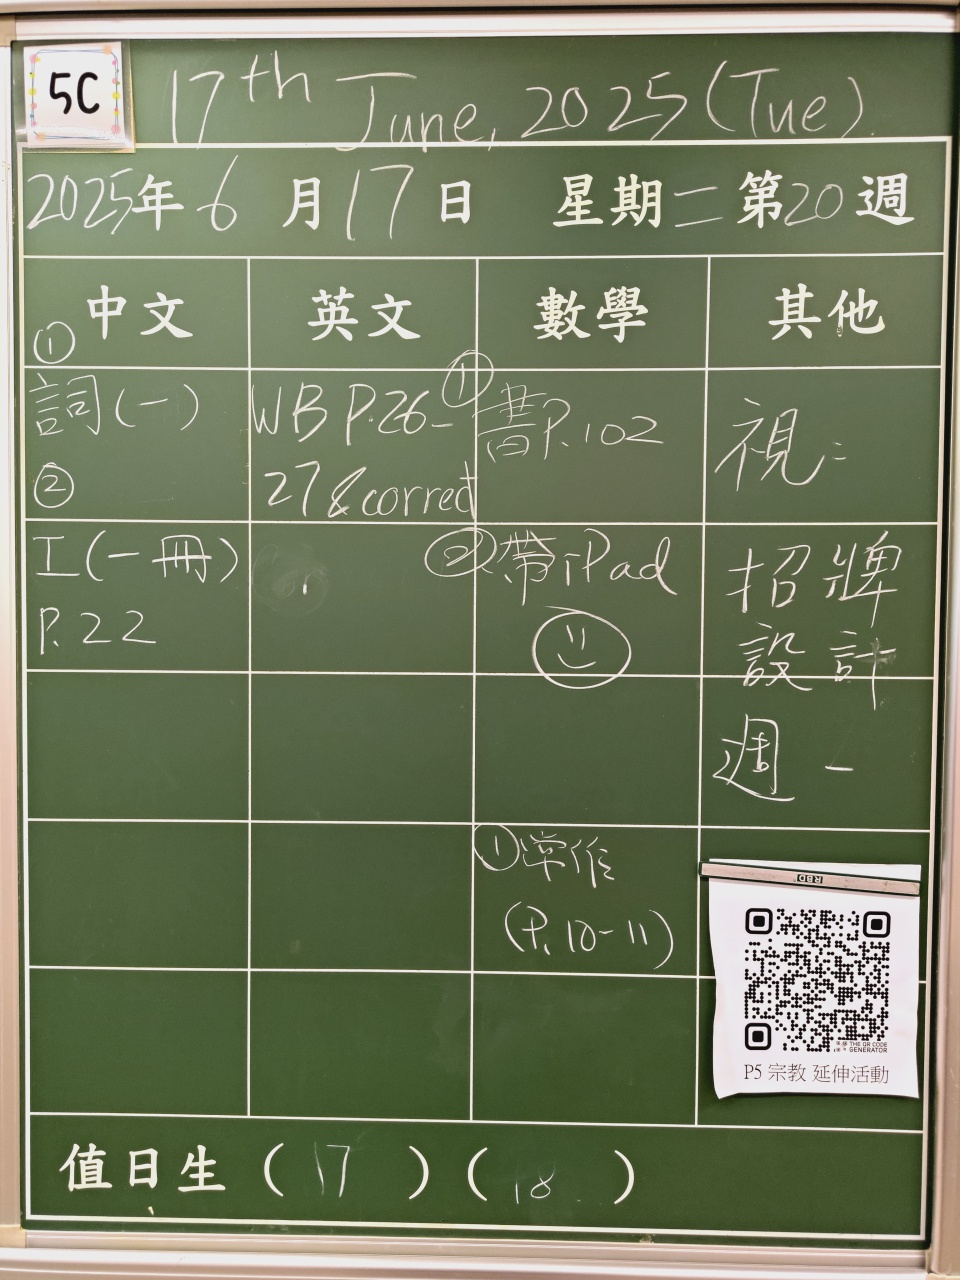 5C
17th June, 2025 (Tue)
2025年6月17日 星期二 第20週
中文 英文 數學 其他
①
詞(一)
②
工(一冊)
P.22
WB P.26-
27 & correct
① 書P.102
② 帶iPad
① 常作
(P.10-11)
視:
招牌
設計
週一
RBD
THE QR CODE
GENERATOR
P5 宗教 延伸活動
值日生 (17) (18)